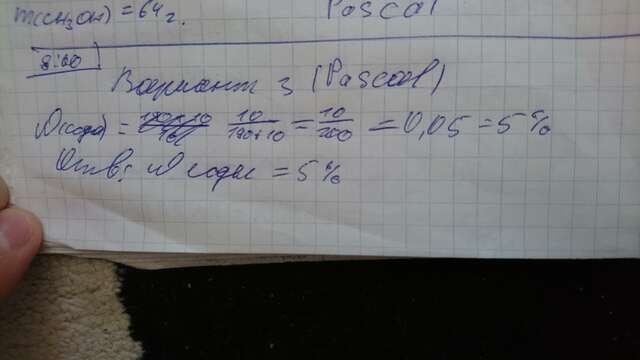 m(CH₃OH) = 64 г. Pascal
8:00
Вариант 3 (Pascal)
ω(соды) = 10/190+10 = 10/200 = 0,05 = 5%
Отв: ω соды = 5%